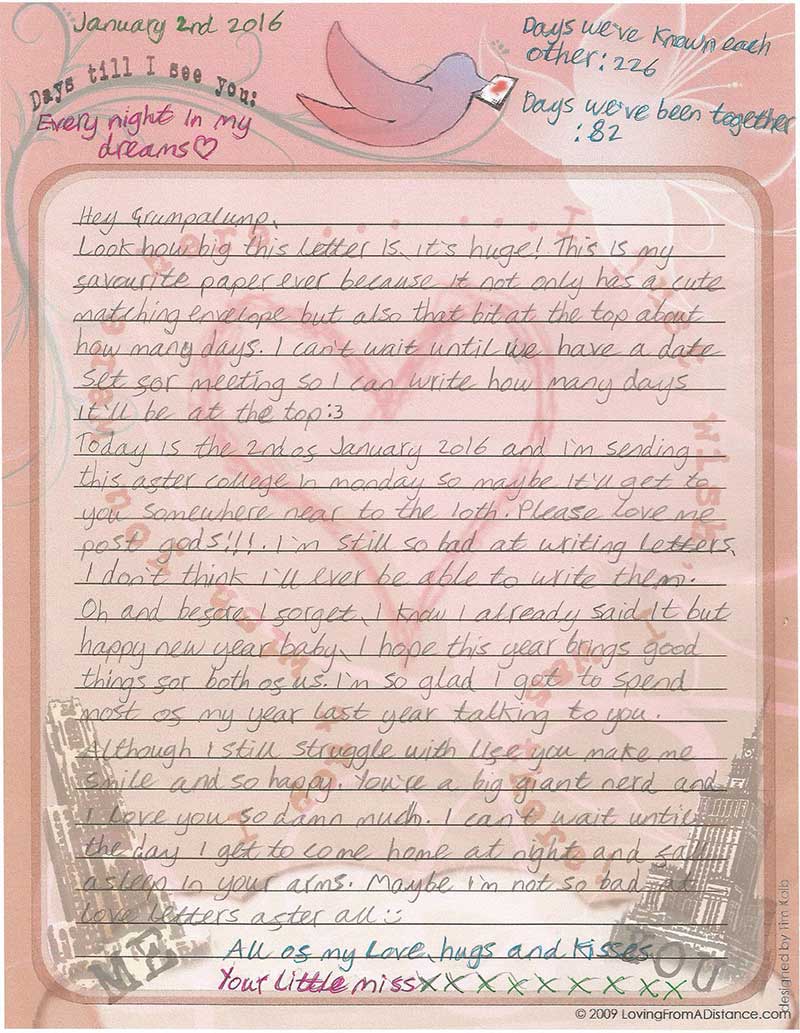 January 2nd 2016
Days we've known each
other: 226
Days till I see you:
Every night in my
dreams♡
Days we've been together
:82
Hey Grumpalump,
Look how big this letter is, it's huge! This is my
favourite paper ever because it not only has a cute
matching envelope but also that bit at the top about
how many days. I can't wait until we have a date
set for meeting so I can write how many days
it'll be at the top:3
Today is the 2nd of January 2016 and i'm sending
this after college in monday so maybe it'll get to
you somewhere near to the 10th. Please love me
post gods!!!. I'm still so bad at writing letters,
I don't think i'll ever be able to write them.
Oh and before I forget, I know I already said it but
happy new year baby, I hope this year brings good
things for both of us. I'm so glad I got to spend
most of my year last year talking to you.
Although I still struggle with life you make me
smile and so happy. You're a big giant nerd and
I love you so damn much. I can't wait until
the day I get to come home at night and fall
asleep in your arms. Maybe i'm not so bad at
love letters after all :)
All of my love, hugs and kisses
Your little miss x x x x x x x x x x
ME
YOU
designed by Tim Kolb
© 2009 LovingFromADistance.com